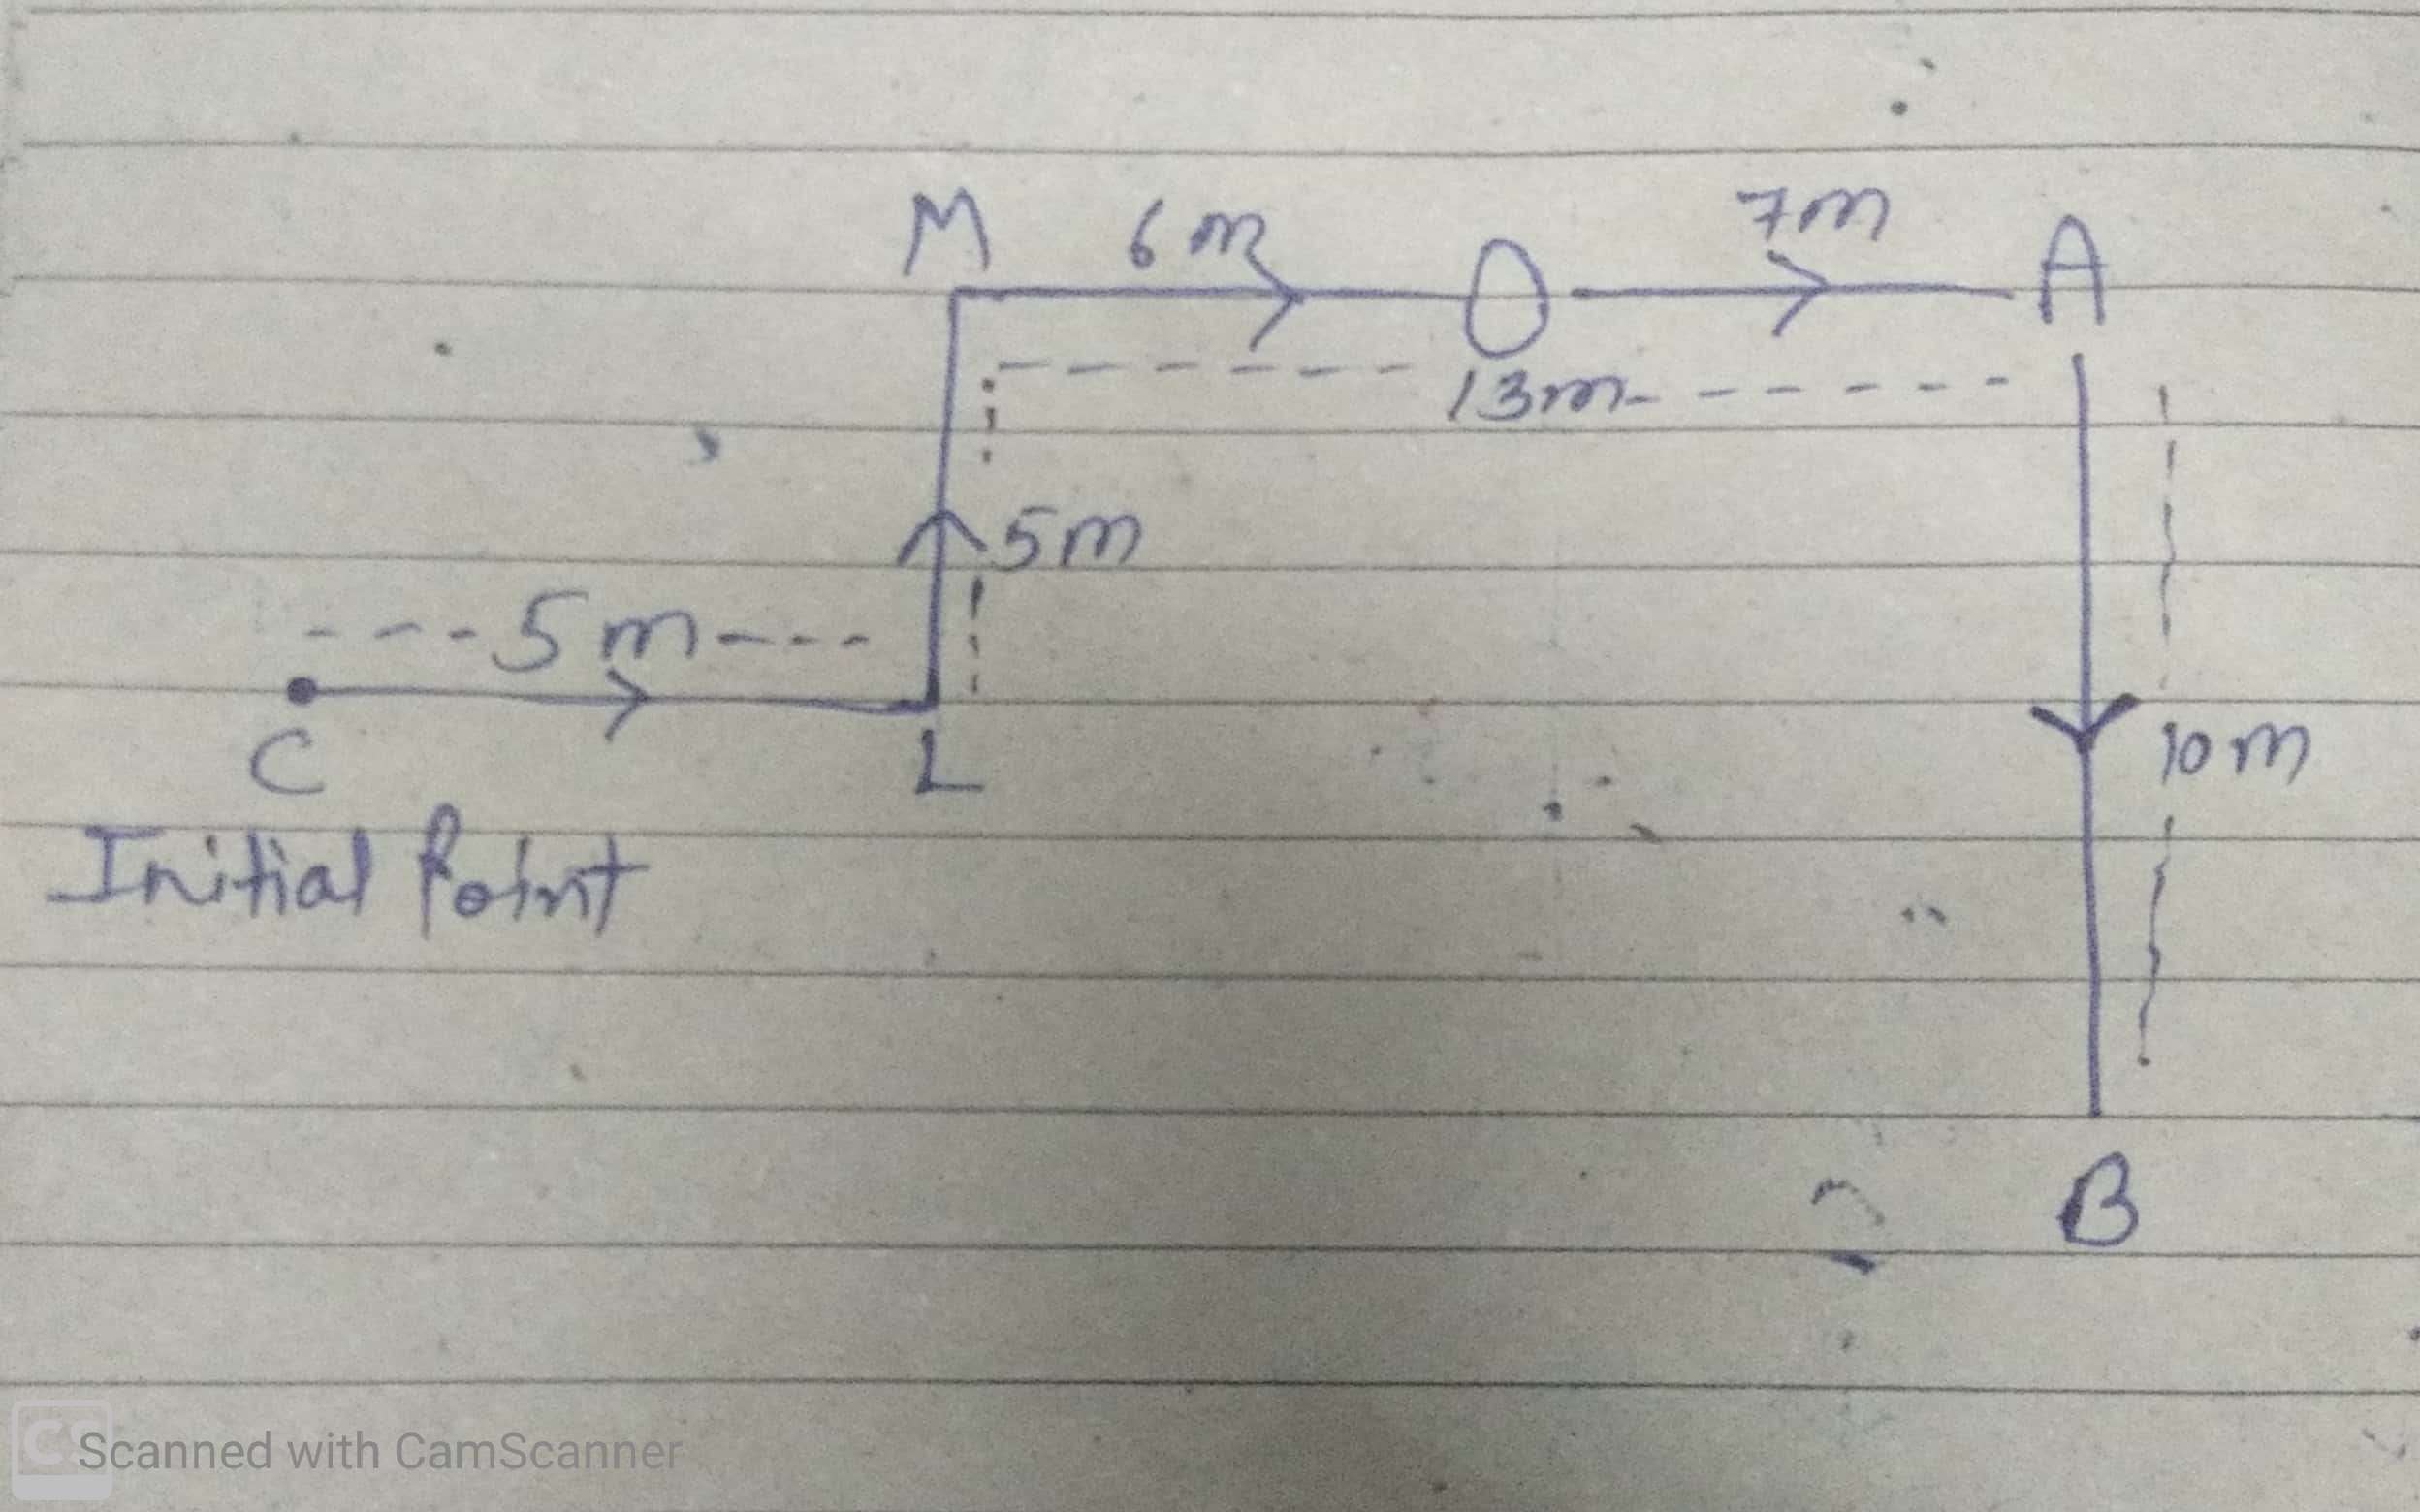 M 6m O 7m A
13m
5m
5m
10m
C L
Initial Point
B
CS Scanned with CamScanner